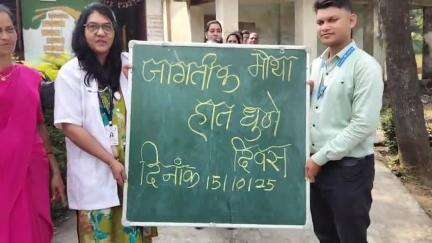 जागतीक मौथा
हात धुणे
दिवस
दिनांक 15/10/25